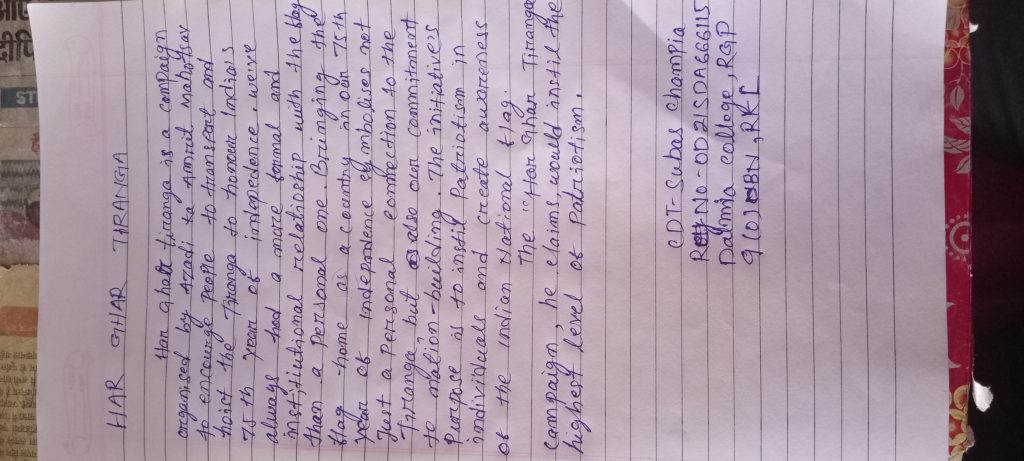 HAR GHAR THRANGA
Har ghar tiranga is a campaign
organised by Azadi ka Amrit Mahotsav
to encourge people to transert and
hoist the Tiranga to honour India's
75th year of intenpedence. We've
always had a more formal and
institutional relationship with the flag
than a personal one. Bringing the
flag home as a country in our 75th
year of independence symbolises not
Just a personal connection to the
Tiranga, but also our commitment
to nation-building. The initiatives
Purpose is to instil Patriotism in
individuals and create awareness
of the Indian National flag.
The "Har Ghar Tiranga
campaign, he claims, would instil the
highest level of Patriotism.
CDT-Subas Champia
NO-OD21SDA666115
Dalmia college, RGP
BN, RKL
ST